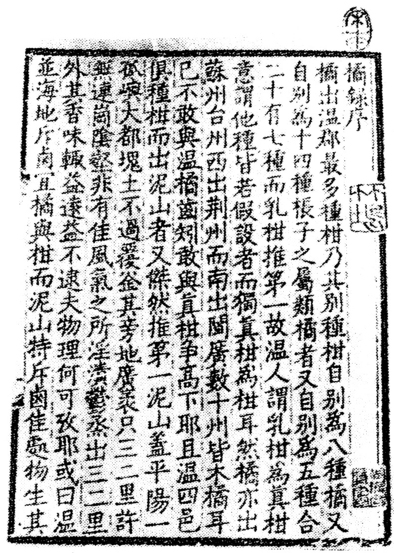 橘錄序
橘出溫郡最多種柑乃其別種柑自別爲八種橘又
自別爲十四種橙子之屬類橘者又自別爲五種合
二十有七種而乳柑推第一故溫人謂乳柑爲眞柑
意謂他種皆若假設者而獨眞柑爲柑耳然橘亦出
蘇州台州西出荆州而南出閩廣數十州皆木橘耳
已不敢與溫橘齒矧敢與眞柑爭高下耶且溫四邑
俱種柑而出泥山者又傑然推第一泥山蓋平陽一
孤嶼大都塊土不過覆釜其旁地廣袤只三二里許
無連岡陰壑非有佳風氣之所淫漬鬱蒸出三二里
外其香味輒益遠益不逮夫物理何可攷耶或曰溫
並海地斥鹵宜橘與柑而泥山特斥鹵佳處物生其